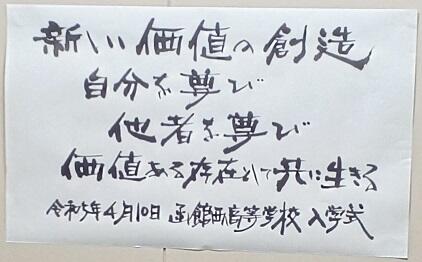 新しい価値の創造
自分を尊び
他者を尊び
価値ある存在として共に生きる
令和5年4月10日 函館西高等学校 入学式